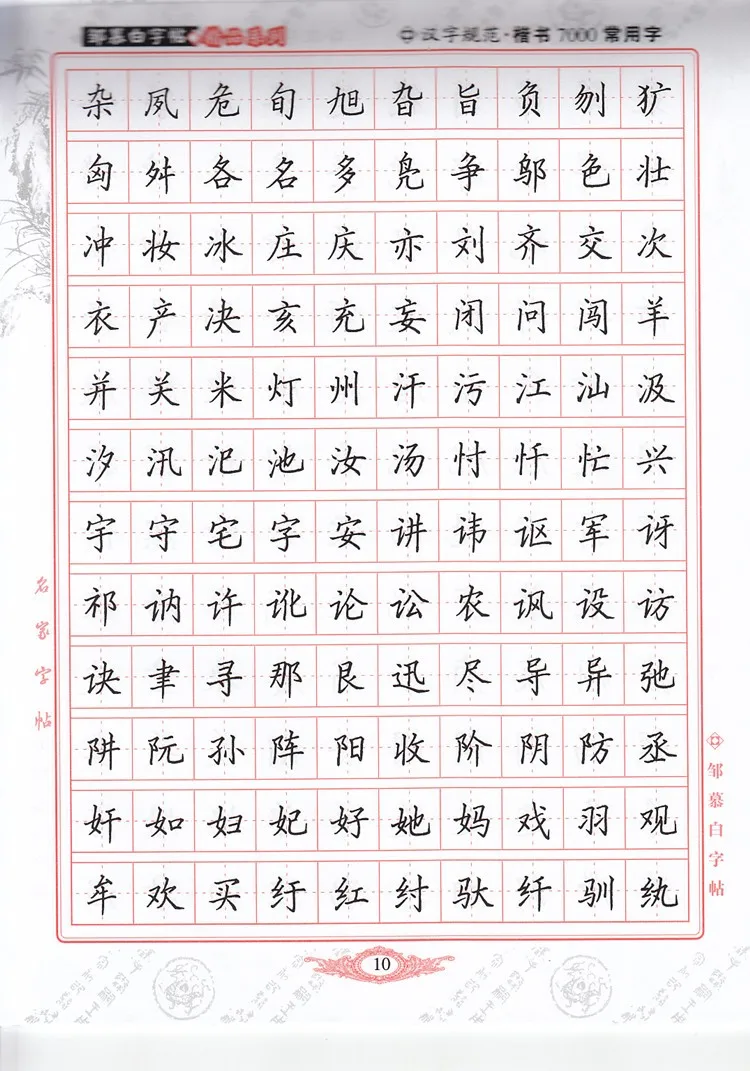 邹慕白字帖 精品系列
汉字规范·楷书7000常用字
杂夙危旬旭旮旨负刎犷
匈舛各名多凫争邬色壮
冲妆冰庄庆亦刘齐交次
衣产决亥充妄闭问闯羊
并关米灯州汗污江汕汲
汐汛汜池汝汤忖忏忙兴
宇守宅字安讲讳讴军讶
祁讷许讹论讼农讽设访
诀聿寻那艮迅尽导异弛
阱阮孙阵阳收阶阴防丞
奸如妇妃好她妈戏羽观
牟欢买纡红纣驮纤驯纨
名家字帖
邹慕白字帖
10